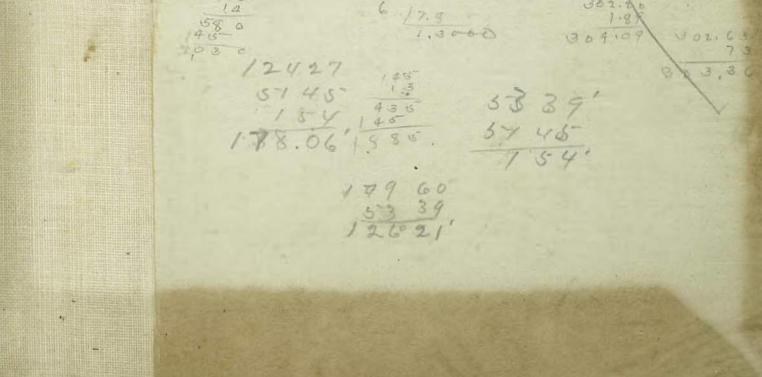 14
58 0
145
203 0
6 17.8
1.3000
302.80
1.8
304.09
302.63
73
303.36
12427
5145
154
178.06'
145
13
435
145
1885.
5339'
5145
154'
179 60
53 39
126 21'